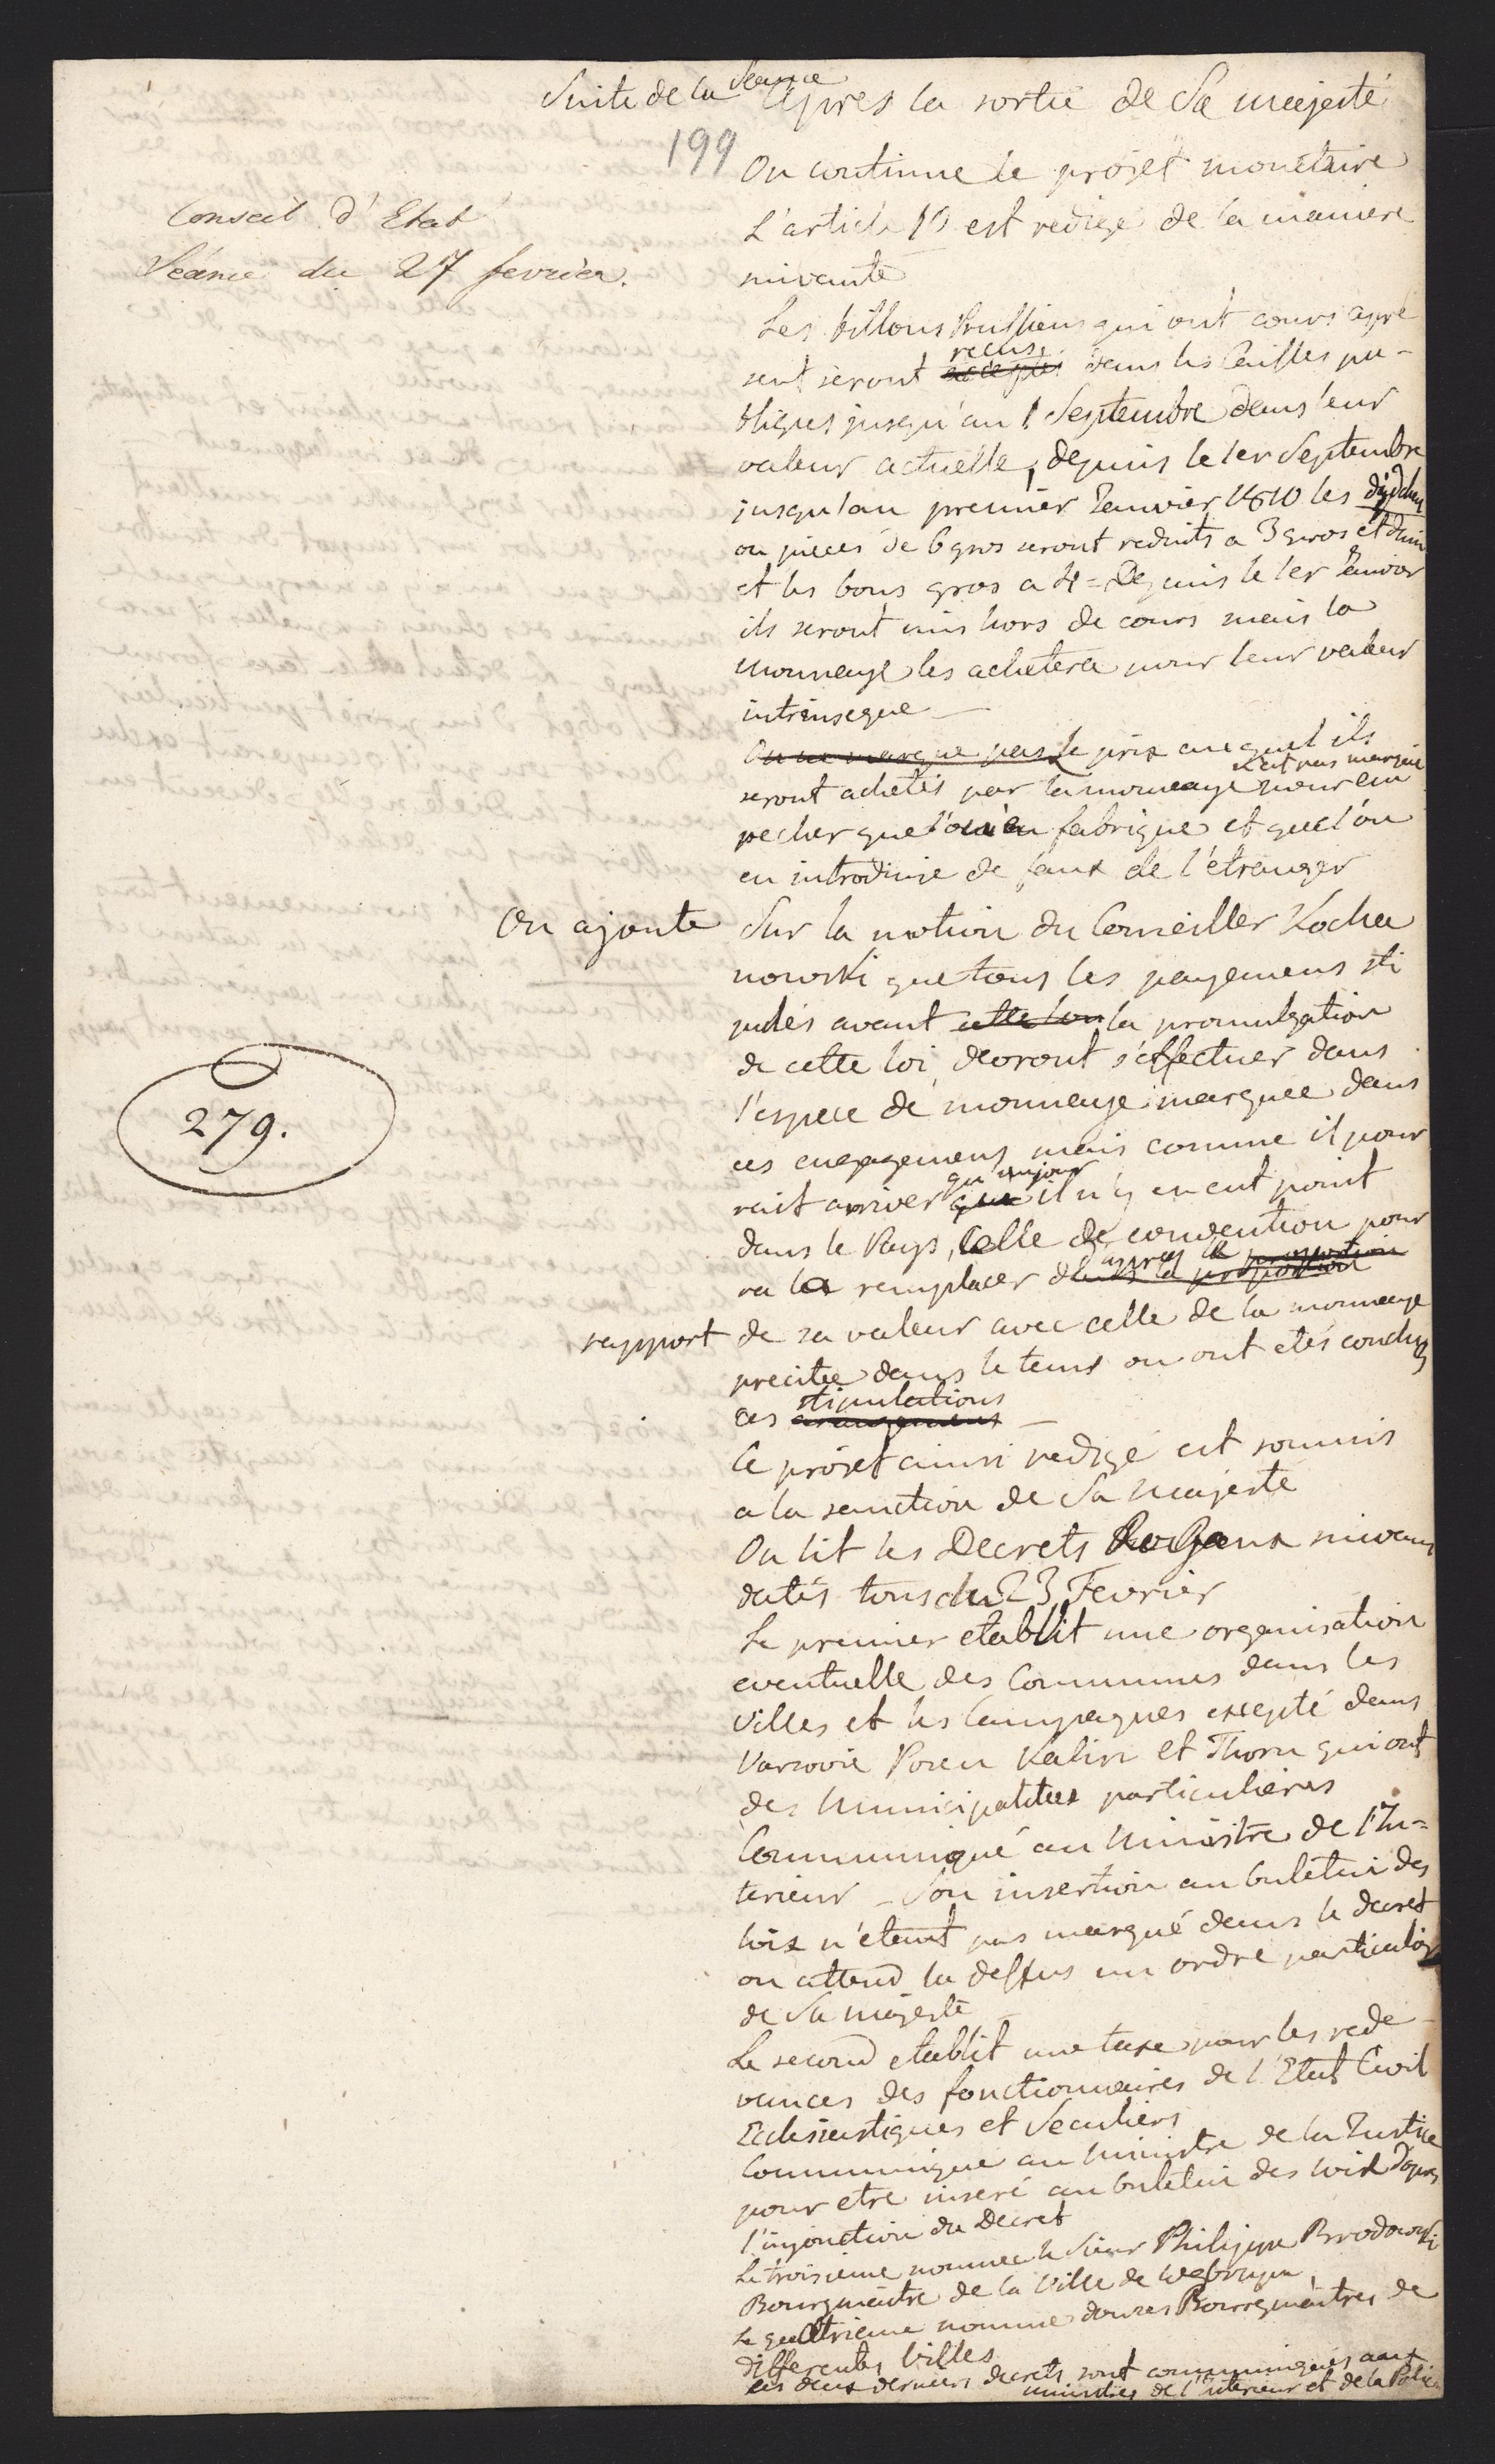 Suite de la Seance Apres la sortie de Sa majesté
199
Conseil d'Etat
Séance du 27 fevrier.
On continue le projet monetaire
L'article 10 est redigé de la maniere
suivante
Les billons Prussiens qui ont cours apre
sent seront accéptés recus dans les Caisses pu-
bliques jusqu'au 1 Septembre dans leur
valeur actuelle, depuis le 1er Septembre
jusqu'au premier Janvier 1810 les
ou pieces de 6 gros seront reduits a 3 gros et demi
et les bons gros a 4 = Depuis le 1er Janvier
ils seront mis hors de cours mais la
monnaye les achetera pour leur valeur
intrinseque —
On ne marque pas Le prix auquel ils
seront achetés par la monnaye n'est pas marqué pour em
pecher que l'on en fabrique et que l'on
en introduise de faux de l'étranger
On ajoute Sur la motion du Conseiller Kocha
nowski que tous les payemens sti
pulés avant cette loi la promulgation
de cette loi devront s'éffectuer dans
l'espece de monnaye marquée dans
ces engagemens mais comme il pour
rait arriver que qu'un jour il n'y en eut point
dans le Pays, celle de convention pour
ra la remplacer dans la proportion apres le proportion
rapport de sa valeur avec celle de la monnaye
precitée dans le tems ou ont etés conclus
ces arrangemens stipulations —
Ce projet ainsi redigé est soumis
a la sanction de Sa Majesté
On lit les Decrets Royaux suivans
datés tous du 23 Fevrier
Le premier etablit une organisation
eventuelle des Communes dans les
Villes et les Campagnes excepté dans
Varsovie Posen Kalisz et Thorn qui ont
des Municipalites particulieres
Communiqué au Ministre de l'In=
terieur – Son insertion au buletin des
loix n'étant pas marqué dans le decret
on attend la dessus un ordre particulier
de Sa Majesté
Le second etablit une taxe pour les rede-
vances des fonctionnaires de l'Etat Civil
Eclesiastiques et Seculiers
Communiqué au Ministre de la Justice
pour etre inseré au buletin des loix d'apres
l'injonction du Decret
Le troisieme nomme le Sieur Philippe Brodowski
Bourgmèstre de la Ville de
Le quattrieme nomme douzes Bourgmèstres de
differentes Villes
Les deux derniers decrets sont communiqués aux
ministres de l'interieur et de la Police
279.